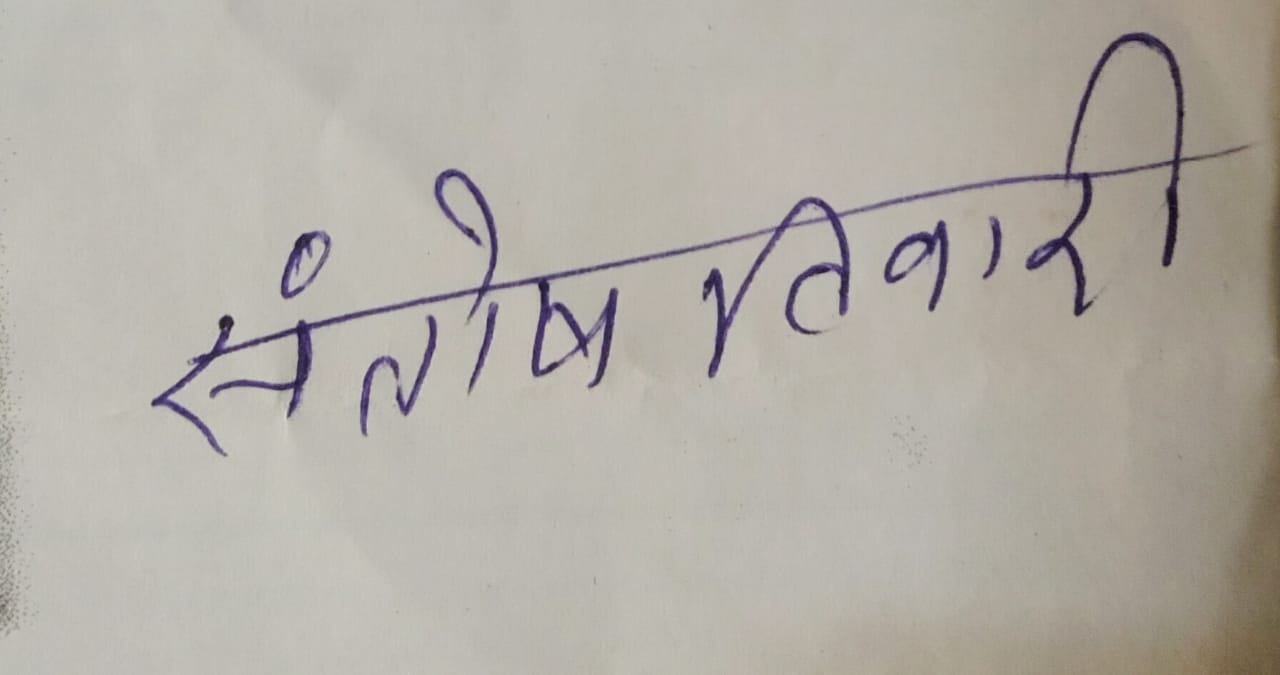 संतोष तिवारी